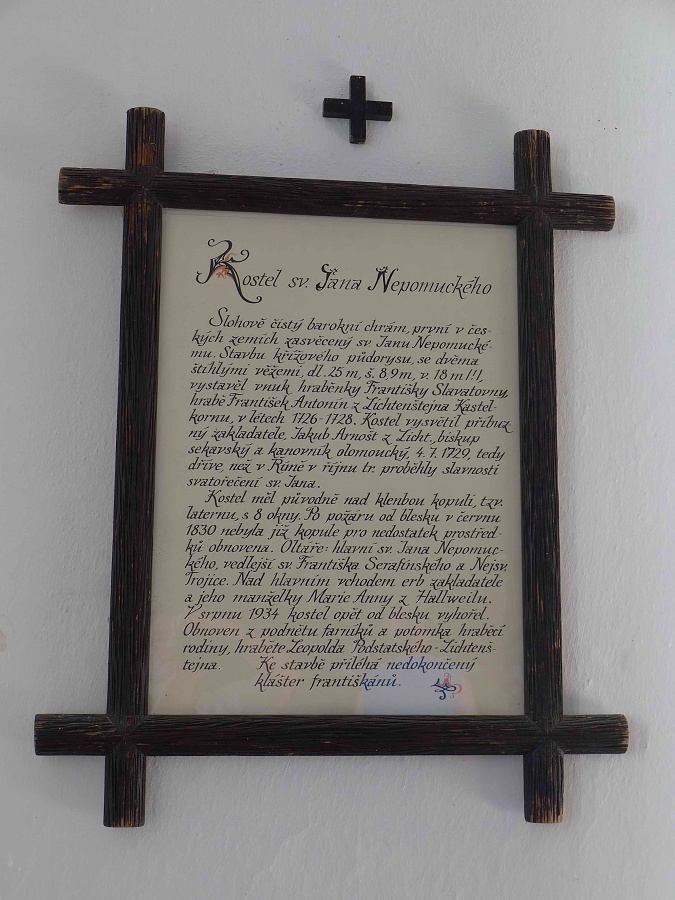 Kostel sv. Jana Nepomuckého
Slohově čistý barokní chrám, první v čes-
kých zemích zasvěcený sv. Janu Nepomucké-
mu. Stavbu křížového půdorysu, se dvěma
štíhlými věžemi, dl. 25 m, š. 8,9 m, v. 18 m (!),
vystavěl vnuk hraběnky Františky Slavatovny,
hrabě František Antonín z Lichtenštejna Kastel-
kornu, v létech 1726-1728. Kostel vysvětil příbuz
ný zakladatele, Jakub Arnošt z Licht., biskup
sekavský a kanovník olomoucký, 4. 7. 1729, tedy
dříve, než v Římě v říjnu tr. proběhly slavnosti
svatořečení sv. Jana.
Kostel měl původně nad klenbou kopuli, tzv.
laternu, s 8 okny. Po požáru od blesku v červnu
1830 nebyla již kopule pro nedostatek prostřed-
ků obnovena. Oltáře: hlavní sv. Jana Nepomuc-
kého, vedlejší sv. Františka Serafínského a Nejsv.
Trojice. Nad hlavním vchodem erb zakladatele
a jeho manželky Marie Anny z Hallweilu.
V srpnu 1934 kostel opět od blesku vyhořel.
Obnoven z podnětu farníků a potomka hraběcí
rodiny, hraběte Leopolda Podstatského-Lichtenš-
tejna. Ke stavbě přiléhá nedokončený
klášter františkánů.